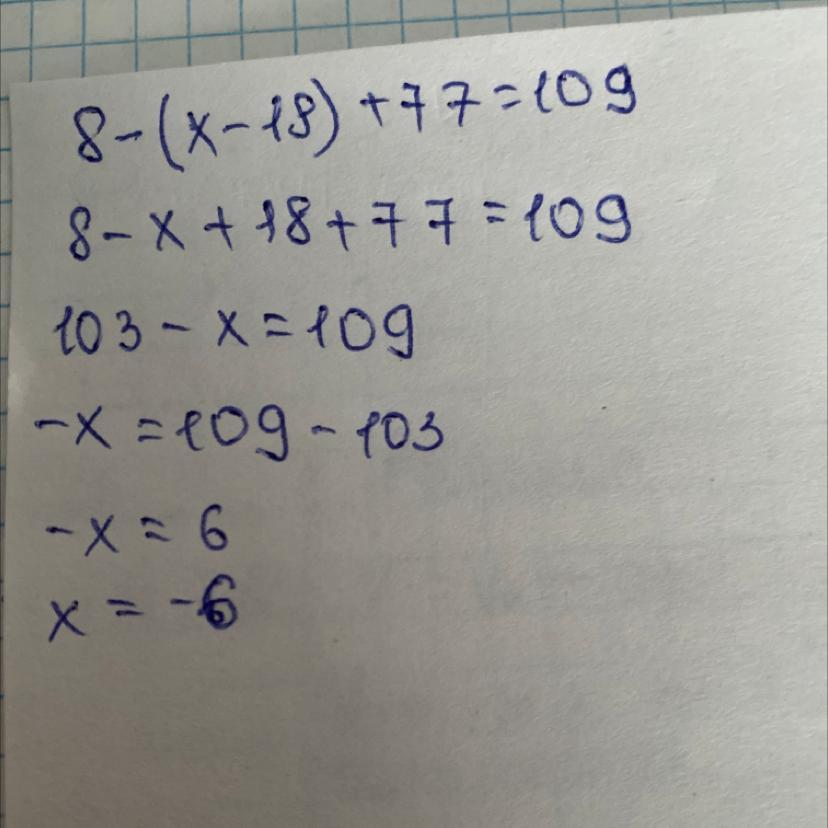 8-(x-18)+77=109
8-x+18+77=109
103-x=109
-x=109-103
-x=6
x=-6